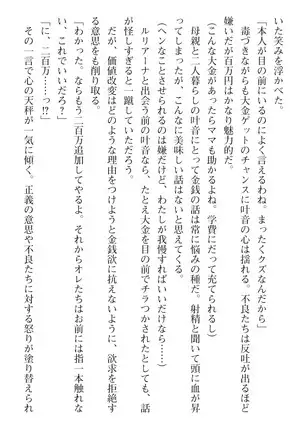 いた笑みを浮かべた。
「本人が目の前にいるのによく言えるわね。まったくクズなんだから」
毒づきながらも大金ゲットのチャンスに叶音の心は揺れる。不良たちは反吐が出るほど
嫌いだが百万円はかなり魅力的だ。
(こんな大金があったらママも助かるよね。学費にだって充てられるし)
母親と二人暮らしの叶音に金銭の話は常に悩みの種だ。射精と聞いて頭に血が昇
ってしまったが、こんなに美味しい話はないと思えてくる。
(ヘンなことさせられるのは嫌だけど、わたしが我慢すればいいだけなら……)
ルリアーナと出会う前の叶音なら、たとえ大金を目の前でチラつかされたとしても、話
が怪しすぎると一蹴していただろう。
だが、価値改変はどのような理由をつけようと金銭欲に抗えないように、欲求を拒絶す
る意思をも削り取る。
「足りなかったか? ならもう二百万追加してやるよ。それからオレたちはお前には指一本触れな
い、これでいいだろ?」
「に、二百万……っ!?」
その一言で心の天秤が一気に傾く。正義の意思や不良たちに対する怒りが塗り替えられ